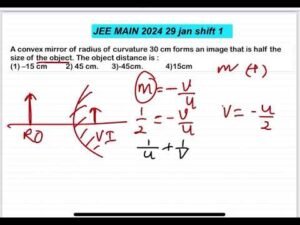 JEE MAIN 2024 29 jan shift 1
A convex mirror of radius of curvature 30 cm forms an image that is half the
size of the object. The object distance is :
(1) –15 cm 2) 45 cm. 3)-45cm. 4)15cm
m (+)
m = - v/u
1/2 = - v/u
v = - u/2
1/u + 1/v
RO
VI